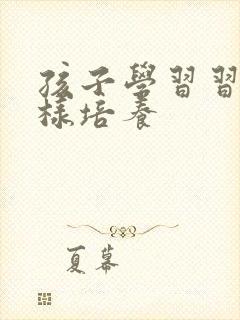 孩子學習習
樣培養
夏幕